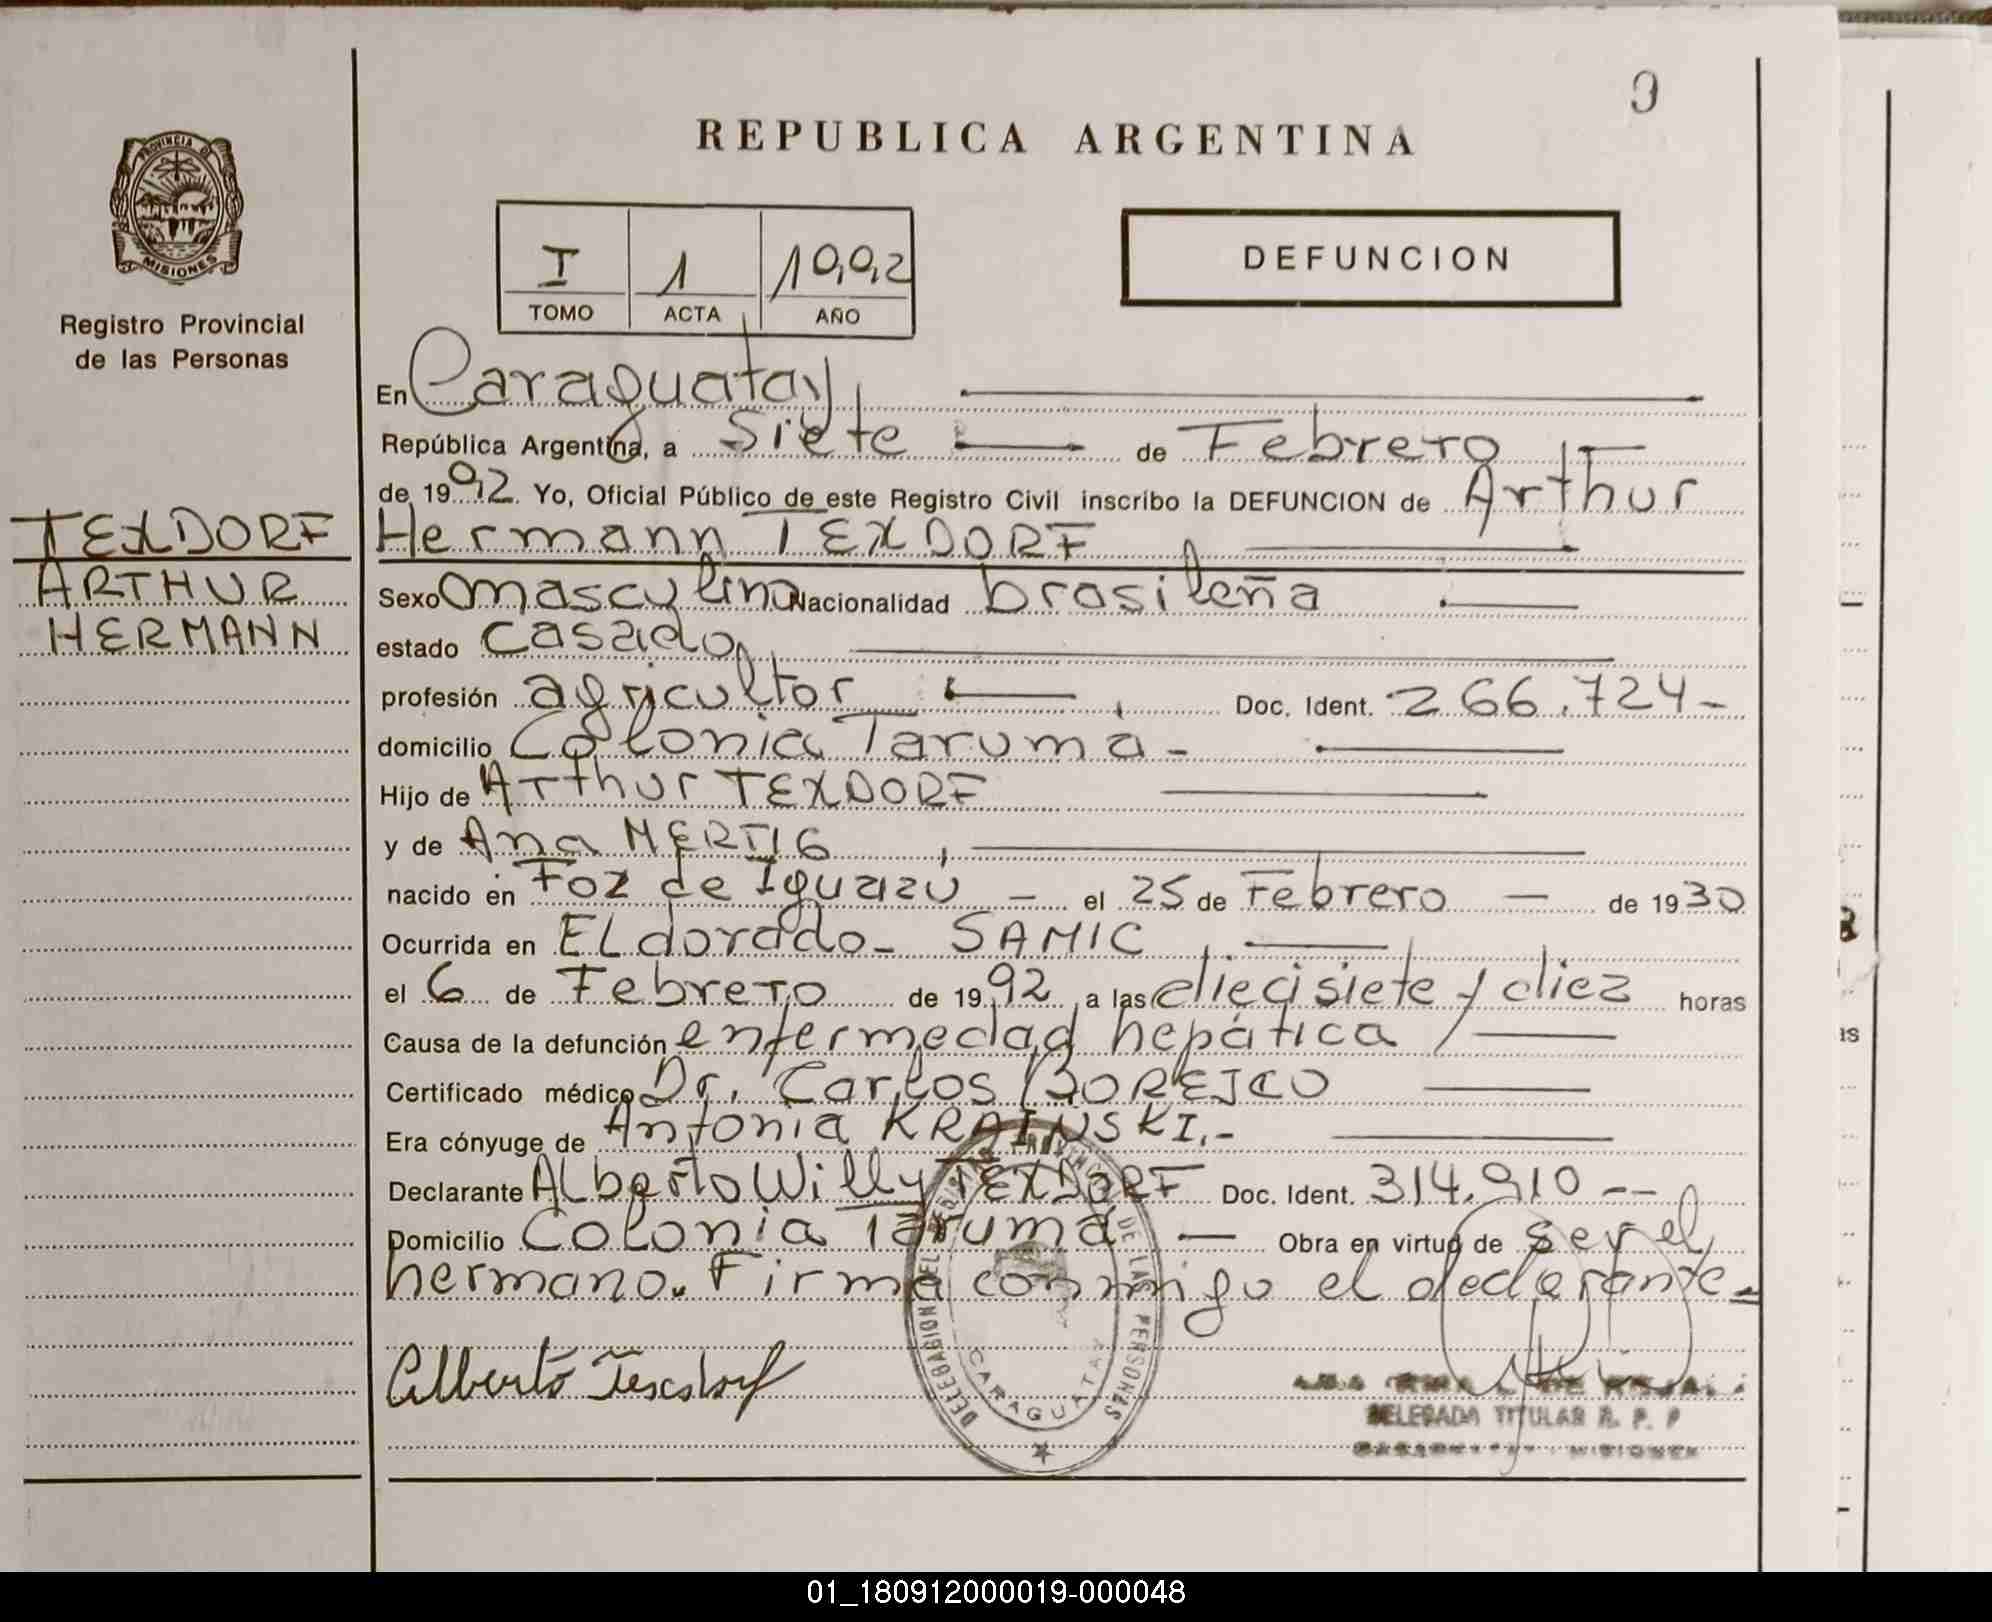 REPUBLICA ARGENTINA
PROVINCIA DE
MISIONES
Registro Provincial
de las Personas
I 1 1992
TOMO ACTA AÑO
DEFUNCION
En Caraguatay,
República Argentina, a Siete de Febrero
de 1992. Yo, Oficial Público de este Registro Civil inscribo la DEFUNCION de Arthur
Hermann TEXDORF
TEXDORF
ARTHUR
HERMANN
Sexo masculino Nacionalidad brasileña
estado casado,
profesión agricultor, Doc. Ident. 266.724-
domicilio Colonia Taruma-
Hijo de Arthur TEXDORF
y de Ana MERTIG,
nacido en Foz de Iguazú — el 25 de Febrero — de 1930
Ocurrida en ELdorado- SAMIC
el 6 de Febrero de 1992, a las diecisiete y diez horas
Causa de la defunción enfermedad hepática
Certificado médico Dr. Carlos BOREJCO
Era cónyuge de Antonia KRAINSKI.-
Declarante ALberto Willy TEXDORF Doc. Ident. 314.910--
Domicilio Colonia Taruma — Obra en virtud de ser el
hermano. Firma conmigo el declarante-
Alberto Texdorf
DELEGACION DEL REGISTRO PROVINCIAL DE LAS PERSONAS
CARAGUATAY
DELEGADA TITULAR R. P. P
MISIONES
01_180912000019-000048